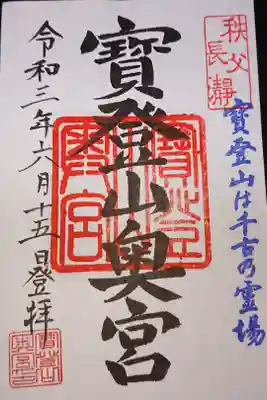 秩父
長瀞
寶登山は千古の霊場
寶登山奥宮
令和三年六月十五日登拝